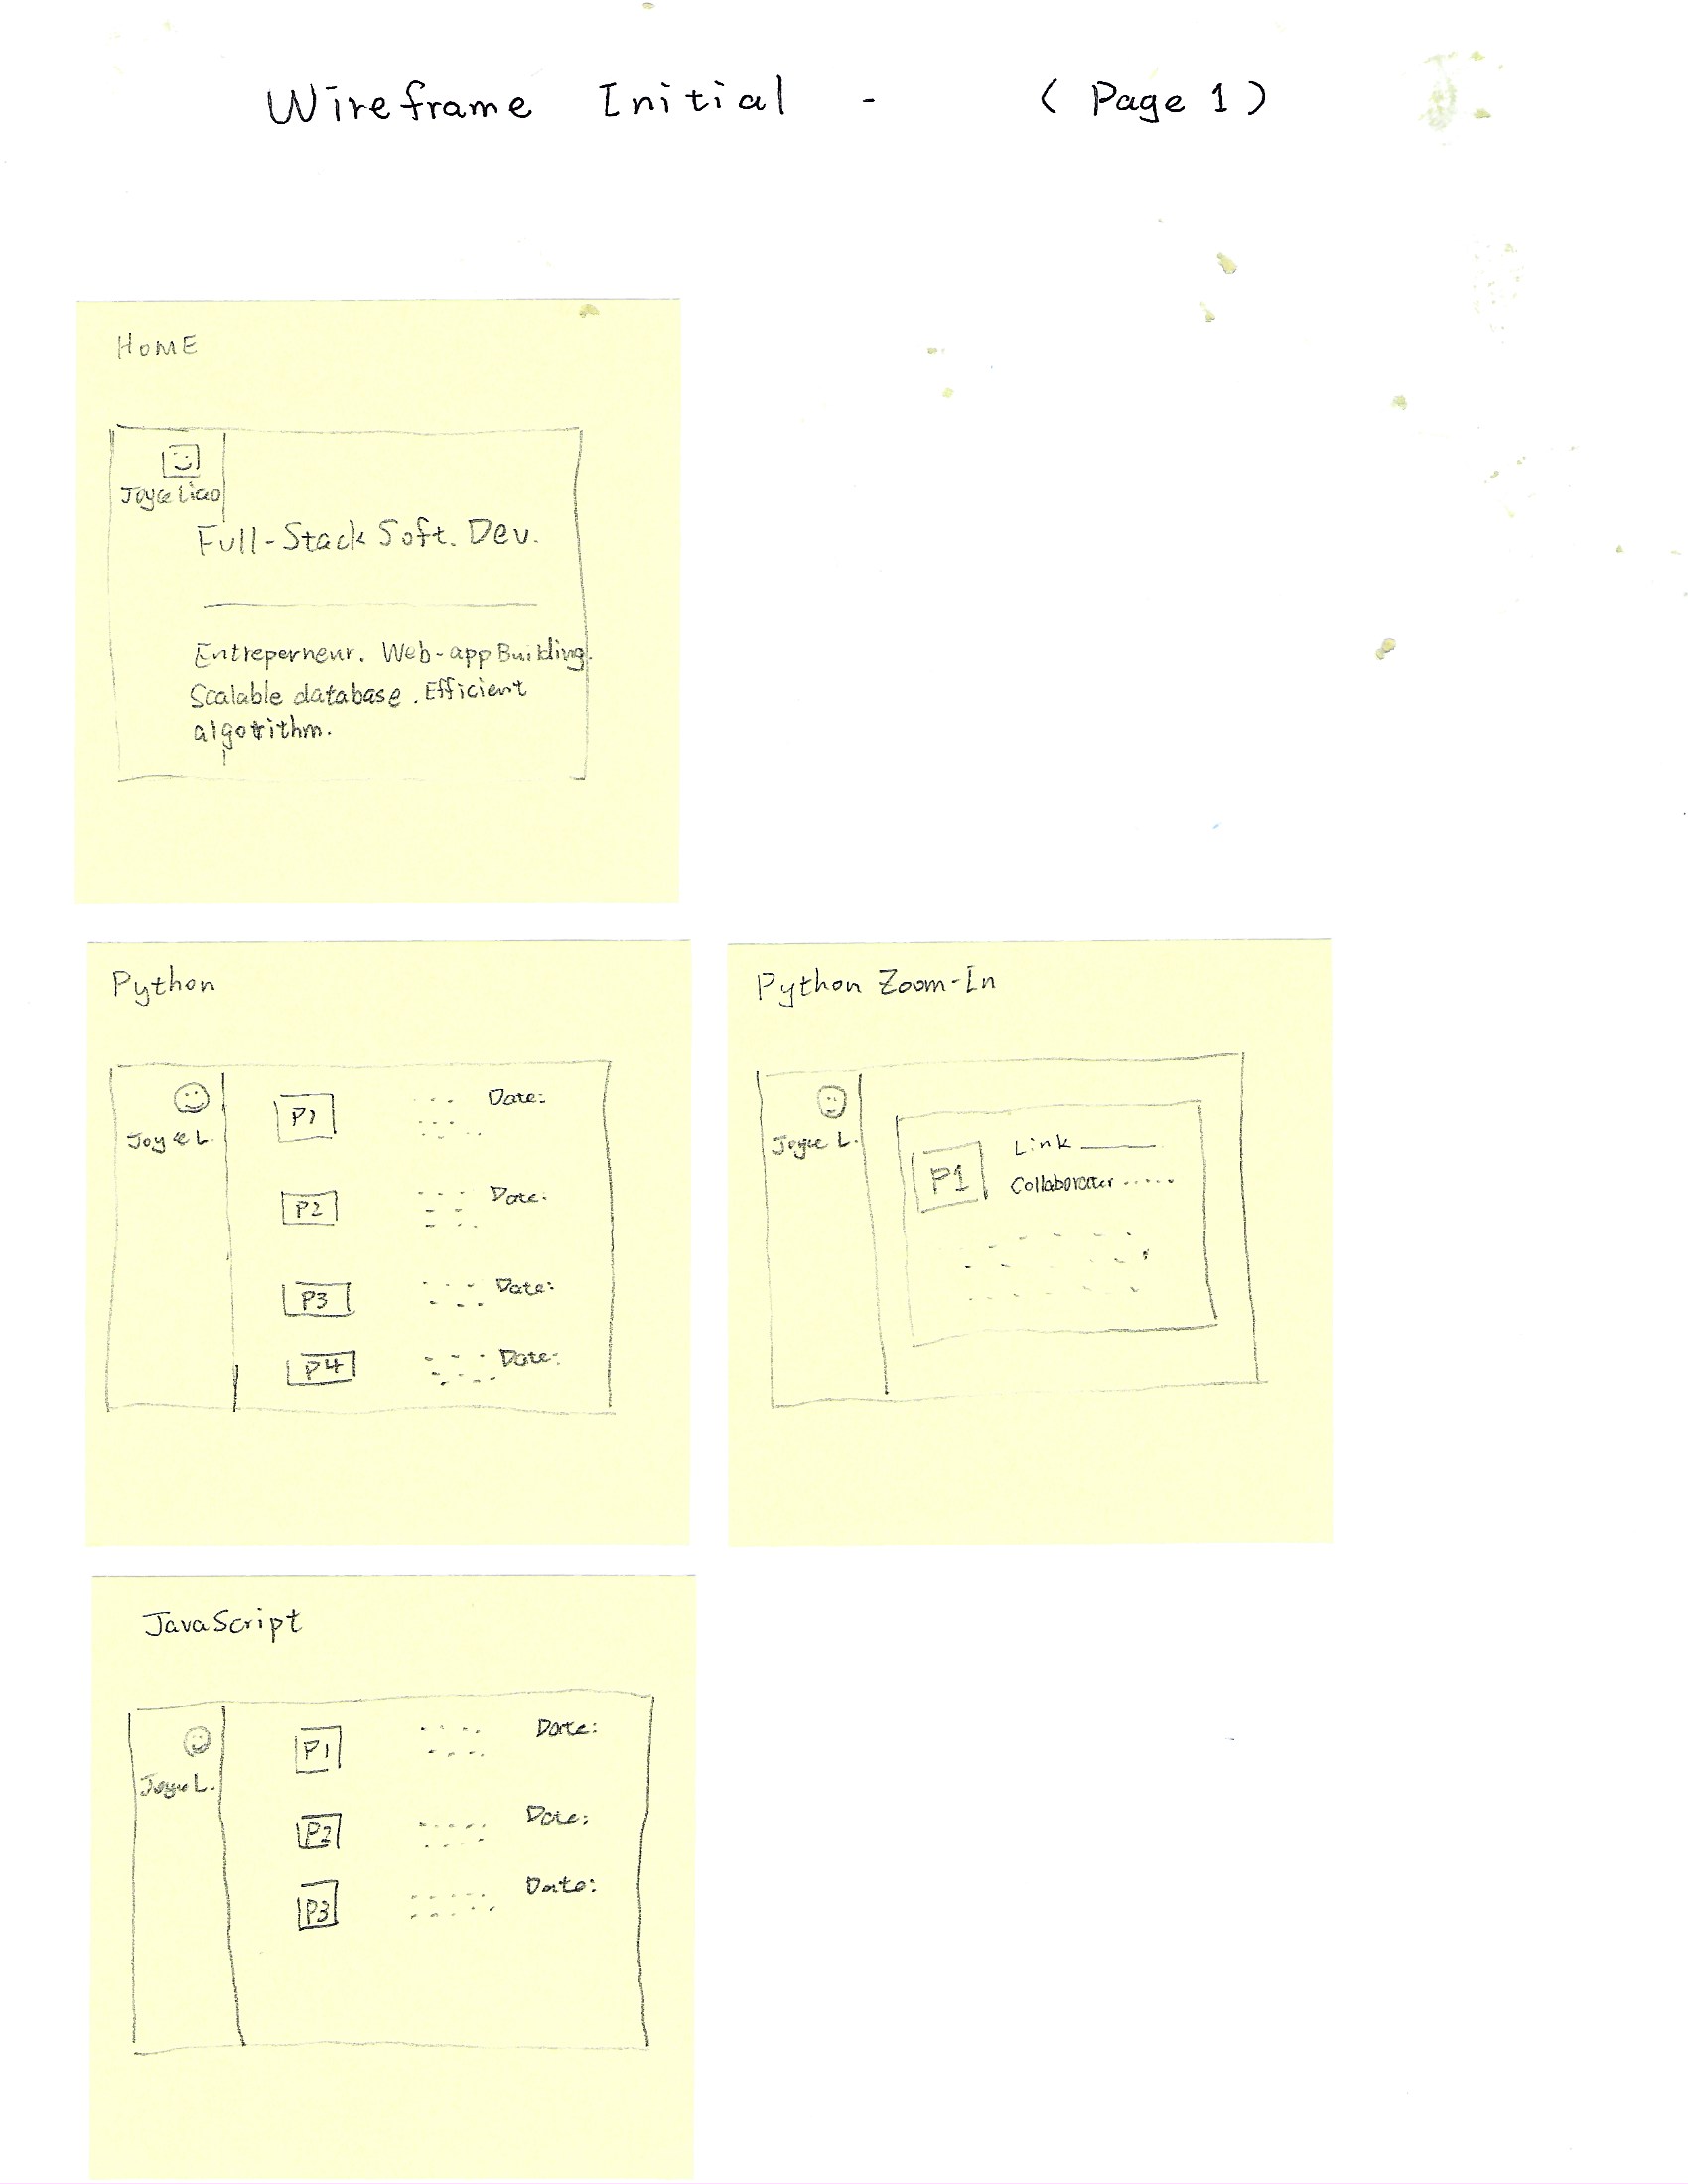 Wireframe Initial - (Page 1)
HOME
Joyce Liao
Full-Stack Soft. Dev.
Entreperneur. Web-app Building.
Scalable database. Efficient
algorithm.
Python
Joyce L.
P1 Date:
P2 Date:
P3 Date:
P4 Date:
Python Zoom-In
Joyce L.
P1
Link
Collaborater
JavaScript
Joyce L.
P1 Date:
P2 Date:
P3 Date: